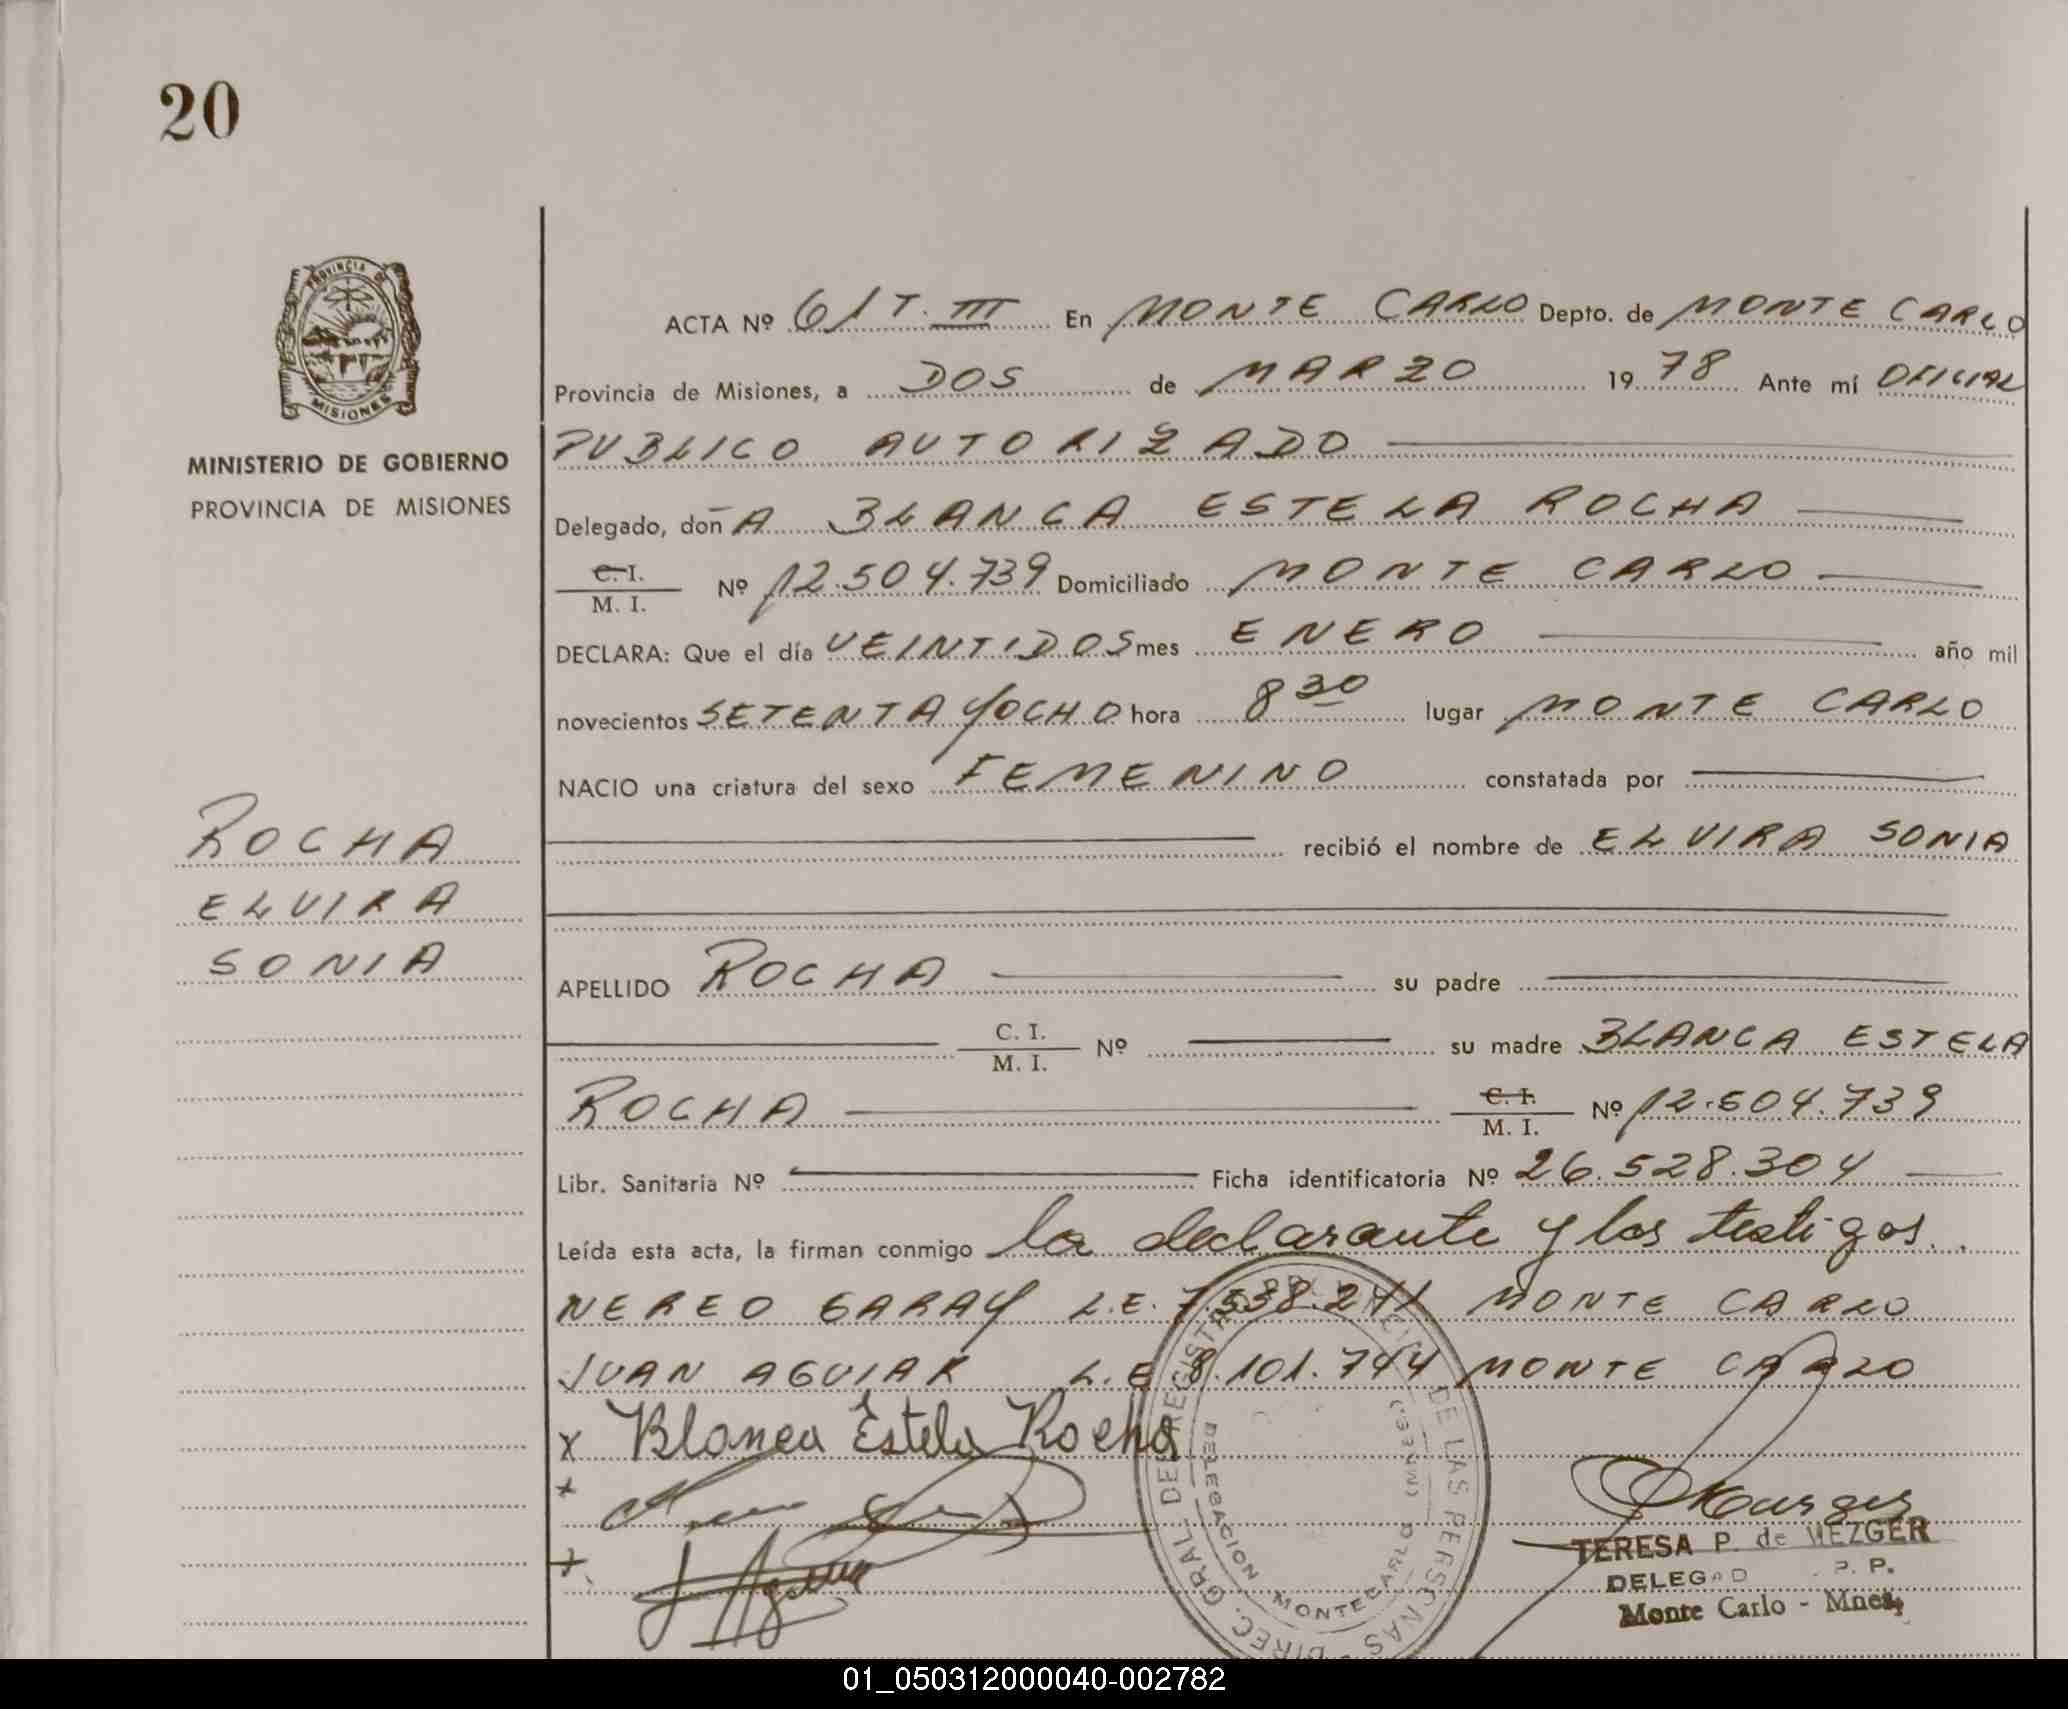 20
PROVINCIA DE
MISIONES
MINISTERIO DE GOBIERNO
PROVINCIA DE MISIONES
ROCHA
ELVIRA
SONIA
ACTA Nº 61 T. III En MONTE CARLO Depto. de MONTE CARLO
Provincia de Misiones, a DOS de MARZO 19 78 Ante mí OFICIAL
PUBLICO AUTORIZADO
Delegado, don A BLANCA ESTELA ROCHA
C. I.
M. I. Nº 12.504.739 Domiciliado MONTE CARLO
DECLARA: Que el día VEINTIDOS mes ENERO año mil
novecientos SETENTA Y OCHO hora 8 30 lugar MONTE CARLO
NACIO una criatura del sexo FEMENINO constatada por
recibió el nombre de ELVIRA SONIA
APELLIDO ROCHA su padre
C. I.
M. I. Nº su madre BLANCA ESTELA
ROCHA C. I.
M. I. Nº 12.504.739
Libr. Sanitaria Nº Ficha identificatoria Nº 26.528.304
Leída esta acta, la firman conmigo la declarante y los testigos.
NEREO GARAY L.E. 7.538.241 MONTE CARLO
JUAN AGUIAR L.E 8.101.744 MONTE CARLO
x Blanca Estela Rocha
DIREC. GRAL. DE REGISTRO PROVINCIAL DE LAS PERSONAS
DELEGACION MONTECARLO (MNES.)
TERESA P. de MEZGER
DELEGAD P. P.
Monte Carlo - Mnes,
01_050312000040-002782